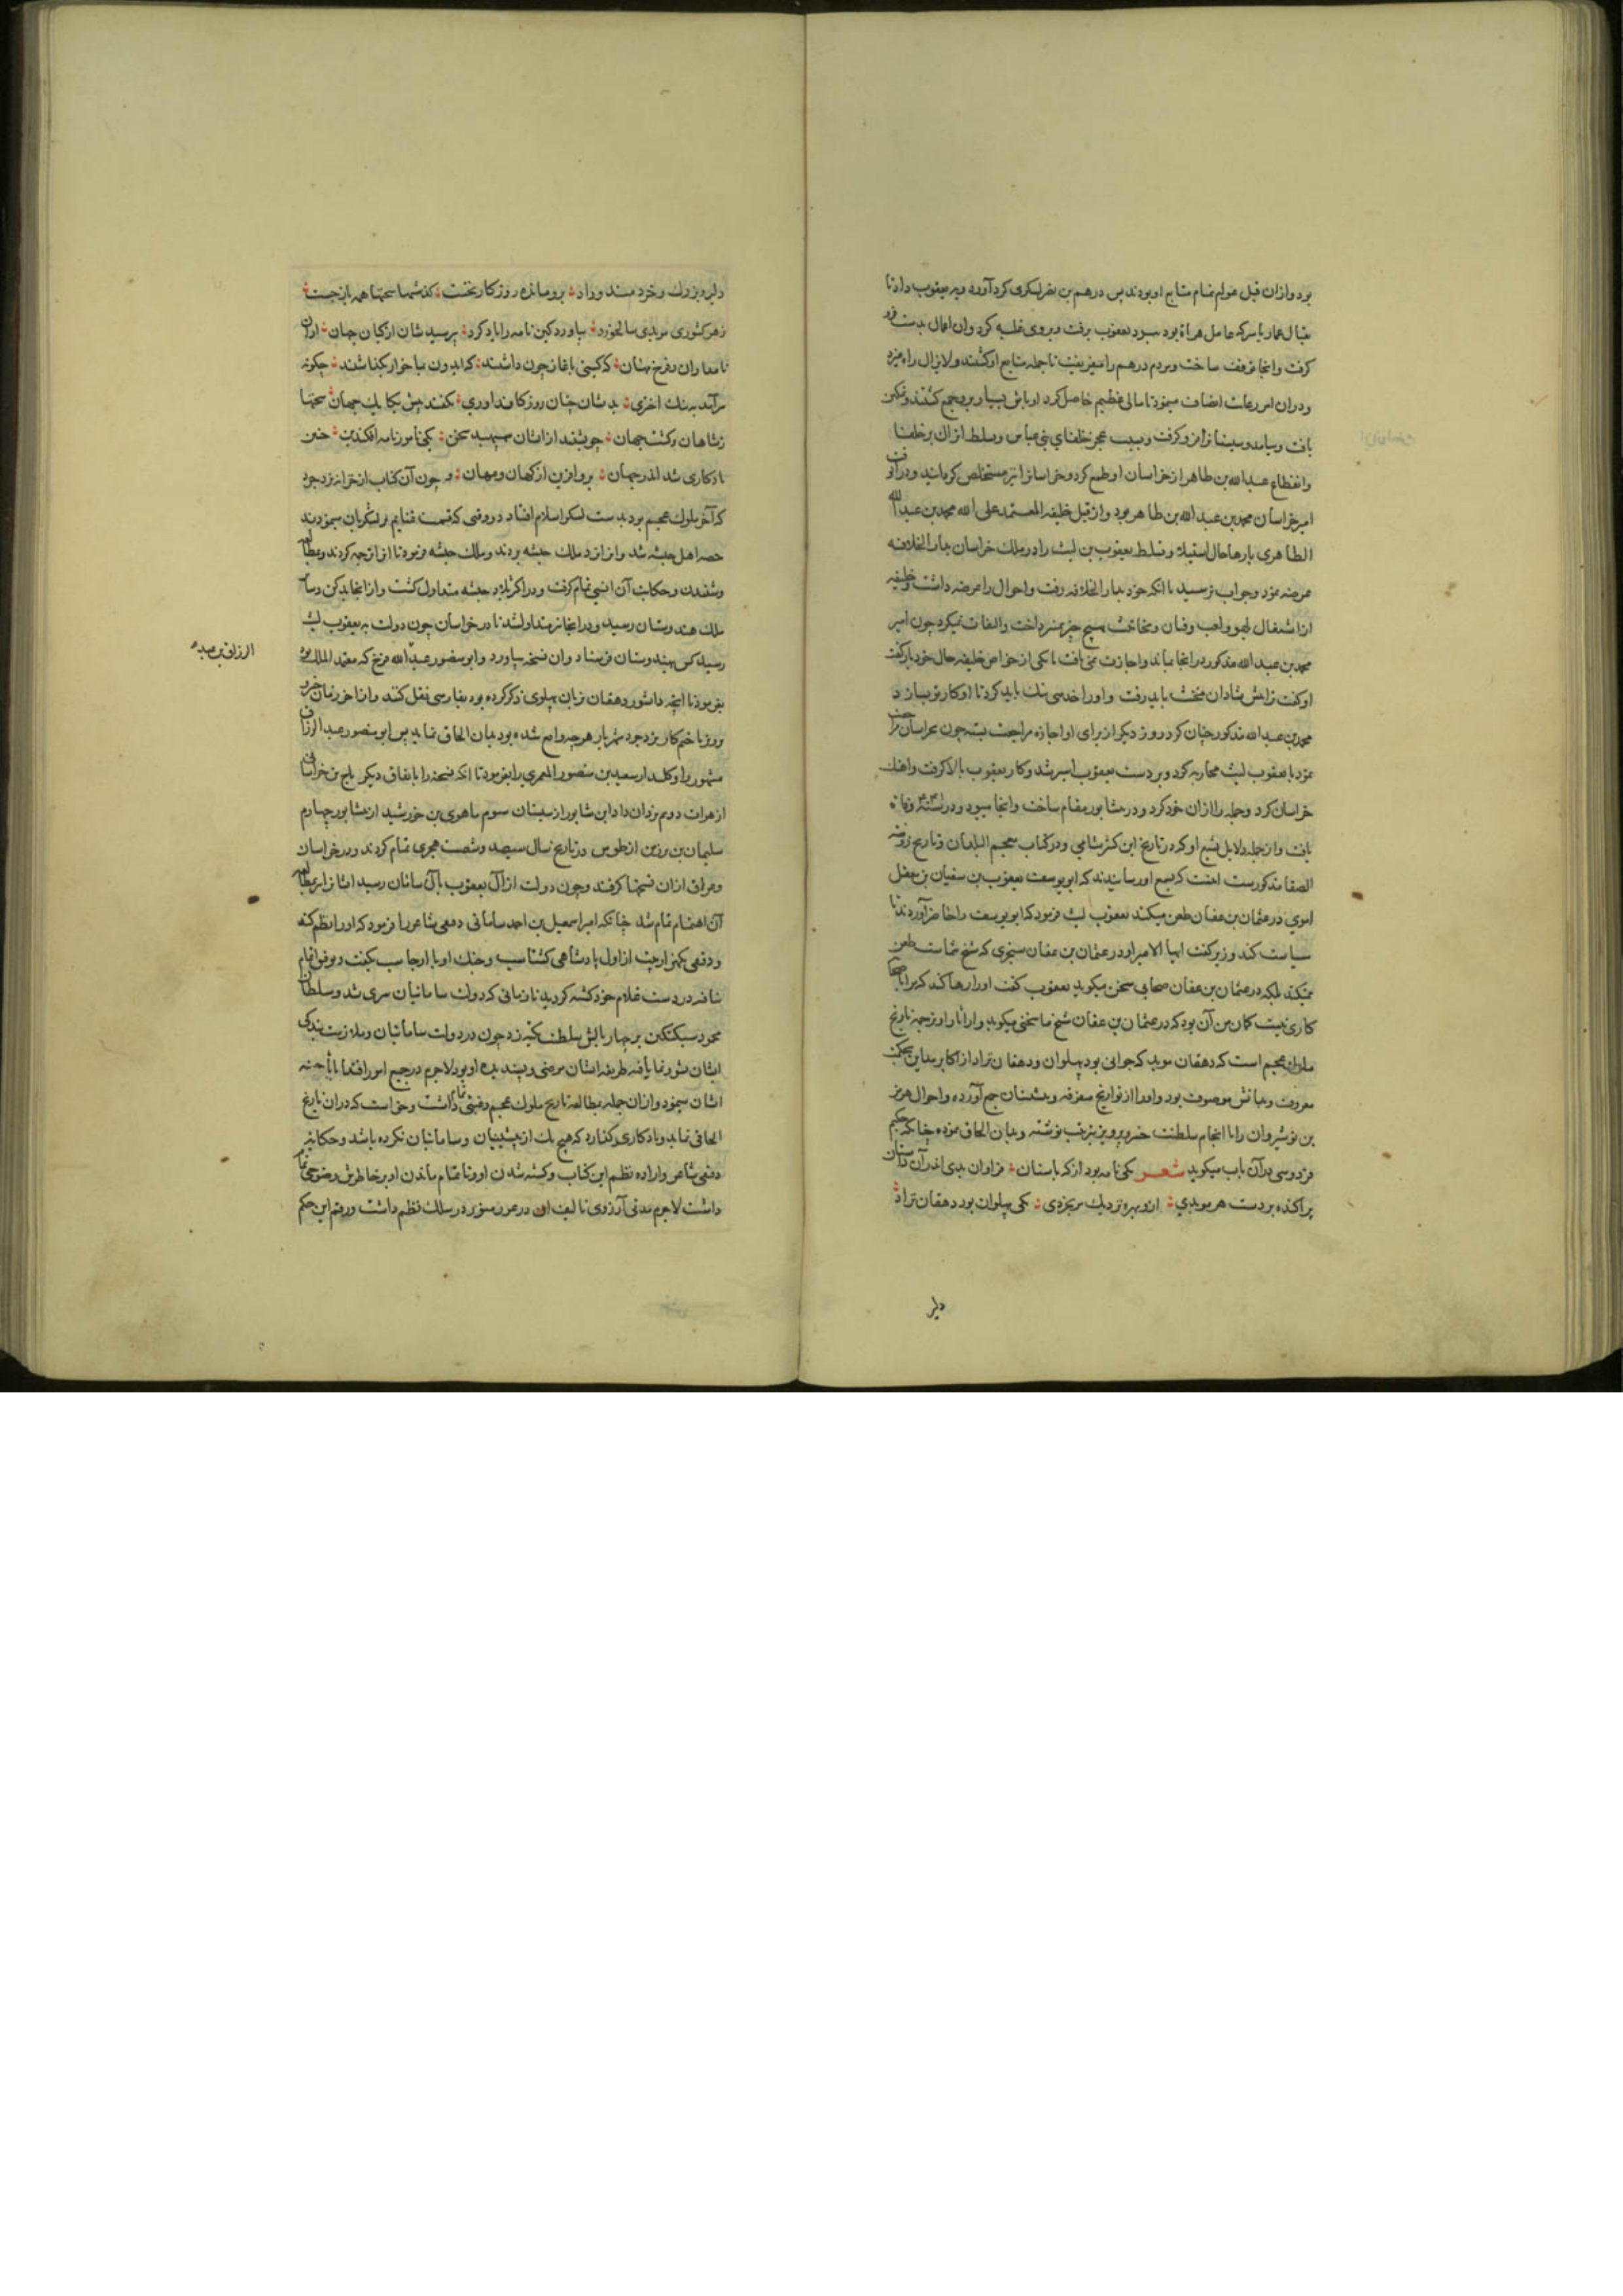 بود وازان قبل عوام تمام متابع او بودند پس درهم بن نصر لشکری کرد آورد ویر یعقوب داد تا
بقتال عمار یاسر که عامل هراة بود سود یعقوب برفت وبروی غلبه کرد وان اعمال بدست فرو
کرفت وانجا توقف ساخت ومردم درهم را میفریفت تا جمله متابع او کشتند ولایزال راه میزد
ودران امر رعات انصاف مینمود تا مالی عظیم حاصل کرد اوباش بسیار بروجمع کشتند وتمکن
یافت وبیامد وسیستا نرا فرو کرفت وبسبب عجز خلفای بنی عباس وتسلط اتراک بر خلفا
وانقطاع عبد الله بن طاهر از خراسان او طمع کرد وخراسانرا نیز مستخلص کرداند ودران
امیر خراسان محمد بن عبد الله بن طاهر بود واز قبل خلیفه المعتمد علی الله محمد بن عبد الله
الطاهری بارها حال استیلا وتسلط یعقوب بن لیث را در ملک خراسان بدار الخلافه
عرضه نمود وجواب نرسید تا انکه خود بدار الخلافه رفت واحوال را عرضه داشت وخلیفه
از اشتغال لهو ولعب بهیچ چیز نمی پرداخت والتفات نمیکرد چون امیر
محمد بن عبد الله مذکور در انجا بماند واجازت نمی یافت با یکی از خواص خلیفه حال خود باز کفت
او کفت باید رفت واورا خدمتی نیک باید کرد تا او کار تو بسازد
محمد بن عبد الله مذکور چنان کرد روز دیکر از برای او اجازه مراجعت بستد چون بخراسان
نمود با یعقوب لیث محاربه کرد وبردست یعقوب اسیر شد وکار یعقوب بالا کرفت واهنک
خراسان کرد وجمله را ازان خود کرد ودر نشابور مقام ساخت وانجا میبود ودر وفات
یافت واز جمله دلایل تشیع او که در تاریخ ابن کثیر شامی ودر کتاب معجم البلدان وتاریخ روضة
الصفا مذکورست انست که بسمع او رسانیدند که ابو یوسف یعقوب بن سفیان بن معقل
اموی در عثمان بن عفان طعن میکند یعقوب لیث فرمود که ابو یوسف را حاضر آوردند تا
سیاست کند وزیر کفت ایها الامیر او در عثمان بن عفان سنجری که شیخ شماست طعن
نمیکند بلکه در عثمان بن عفان صحابی سخن میکوید یعقوب کفت اورا رها کنند که مرا با صحابه
کاری نیست کمان من آن بود که در عثمان بن عفان شیخ ما سخنی میکوید واز اثار او ترجمه تاریخ
ملوک عجم است که دهقان موبد که جوانی بود پهلوان ودهقان نژاد از اکابر مداین بحکمت
معروف وبدانش موصوف بود واورا از تواریخ متفرقه ومتشتتان جمع آورده واحوال هرمز
بن نوشیروان را تا انجام سلطنت خسرو پرویز بترتیب نوشته وبدان الحاق نموده چنانکه حکیم
فردوسی در آن باب میکوید شعر یکی نامه بود از که باستان فراوان بدی اندر آن داستان
پراکنده بر دست هر موبدی ازو بهره نزدیک هر بخردی یکی پهلوان بود دهقان نژاد
دلیر
دلیر وبزرک وخردمند وراد بروماند روزکار نخست کذشته سخنها همه باز جست
زهر کشوری موبدی سالخورد بیاورد کین نامه را یاد کرد بپرسیدشان از کیان جهان ازان
نامداران وفرخ مهان که کیتی بآغاز چون داشتند که ایدون بما خوار بکذاشتند چکونه
سرآمد به نیک اختری بدیشان چنان روز کند آوری بکفتند پیش یکایک جهان سخنها
زشاهان وکشت جهان چو بشنید از ایشان سپهبد سخن یکی نامور نامه افکند بن چنین
یادکاری شد اندر جهان برو آفرین از کهان ومهان و چون آن کتاب از خزانه یزدجرد
که آخر ملوک عجم بود بدست لشکر اسلام افتاد در وقتی که قسمت غنایم بر لشکریان مینمودند
حصه اهل حبشه شد وانرا نزد ملک حبشه بردند وملک حبشه فرمود تا انرا ترجمه کردند وبمطالعه
وشنیدن وحکایت آن انسی تمام کرفت ودر اکثر بلاد حبشه متداول کشت واز انجا بدکن وسایر
ملک هندوستان رسید ودر انجا نیز متداول شد تا در خراسان چون دولت به یعقوب لیث
رسید کس بهندوستان فرستاد وان نسخه بیاورد وابو منصور عبد الله فرخ که معتمد الملک بود
الرزاق بن عبد
بفرمود تا انچه دانشور دهقان بزبان پهلوی ذکر کرده بود بفارسی نقل کند واز اخر زمان خسرو
پرویز تا ختم کار یزدجرد شهریار هرچه واقع شده بود بدان الحاق نماید پس ابو منصور عبد الرزاق
مشهور برا وکیل سعید بن منصور المعمری را بفرمود تا انکه نسخه را باتفاق دیکر تاج بن خراسانی
از هرات دوم یزدان داد ابن شابور از سیستان سوم ماهوی بن خورشید از نشابور چهارم
سلیمان بن برزین از طوس در تاریخ سال سیصد وشصت هجری تمام کردند ودر خراسان
وعراق ازان نسخها کرفتند وچون دولت از آل یعقوب بآل سامان رسید ایشانرا بمطالعه
آن اهتمام تمام شد چنانکه امیر اسمعیل بن احمد سامانی دقیقی شاعر را فرمود که اورا نظم کند
ودقیقی یکهزار بیت از اول پادشاهی کشتاسب وجنک او با ارجاسب بکفت وتوفیق اتمام
نیافته در دست غلام خود کشته کردید تا زمانی که دولت سامانیان سپری شد وسلطان
محمود سبکتکین بر چهار بالش سلطنت تکیه زد چون در دولت سامانیان وملازمت بندکی
ایشان نشو ونما یافته طریقه ایشان مرضی وپسندیده او بود لاجرم در جمیع امور اقتدا
ایشان مینمود وازان جمله بمطالعه تاریخ ملوک عجم رغبتی تمام داشت وخواست که دران تاریخ
الحاقی نماید ویادکاری بکذارد که هیچ یک از پیشینیان وسامانیان نکرده باشد وحکایت
دقیقی شاعر واراده نظم این کتاب وکشته شدن او وناتمام ماندن او بر خاطرش وضوحی تمام
داشت لاجرم مدتی آرزوی تالیف او در سلک نظم داشت ورقم این حکم